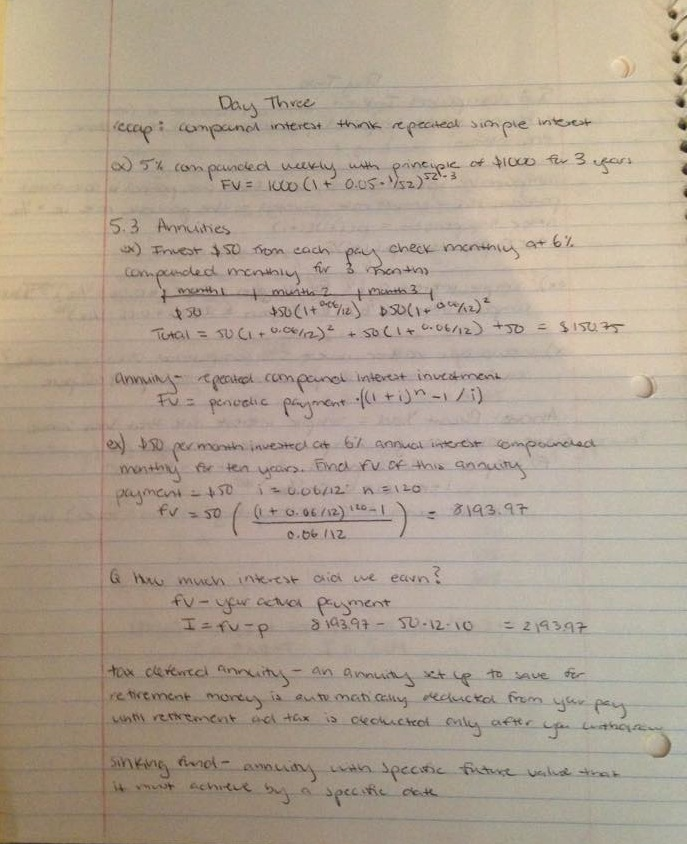 Day Three
recap: compound interest think repeated simple interest
ex) 5% compounded weekly with principle of $1000 for 3 years
FV = 1000 (1 + 0.05·1/52)^52·3
5.3 Annuities
ex) Invest $50 from each pay check monthly at 6%
compounded monthly for 3 months
month 1 month 2 month 3
$50 $50(1+0.06/12) $50(1+0.06/12)²
Total = 50(1+0.06/12)² + 50(1+0.06/12) + 50 = $150.75
annuity- repeated compound interest investment
FV = periodic payment ·((1+i)ⁿ-1/i)
ex) $50 per month invested at 6% annual interest compounded
monthly for ten years. Find FV of this annuity
payment = $50 i = 0.06/12 n = 120
FV = 50 ( (1 + 0.06/12)^120 - 1 ) = 8193.97
0.06/12
Q How much interest did we earn?
FV - your actual payment
I = FV - p 8193.97 - 50·12·10 = 2193.97
tax deferred annuity - an annuity set up to save for
retirement money is automatically deducted from your pay
until retirement and tax is deducted only after you withdraw
sinking fund- annuity with specific future value that
it must achieve by a specific date